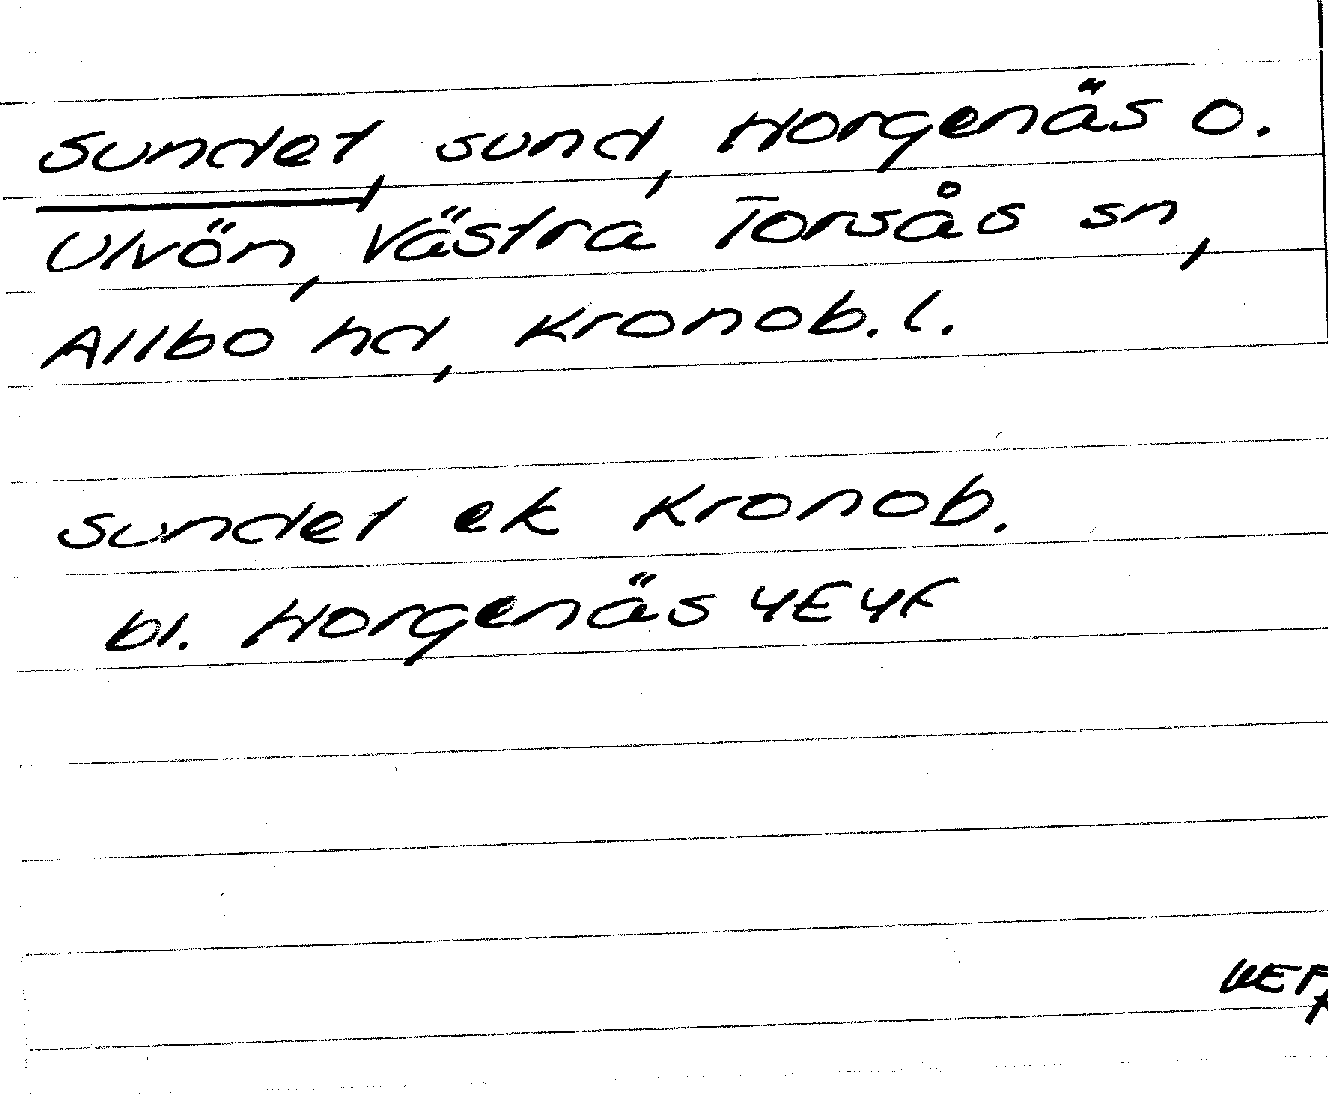 Sundet, sund, Horgenäs o.
Ulvön, Västra Torsås sn,
Allbo hd, Kronob. l.
Sundet ek Kronob.
bl. Horgenäs 4E4F